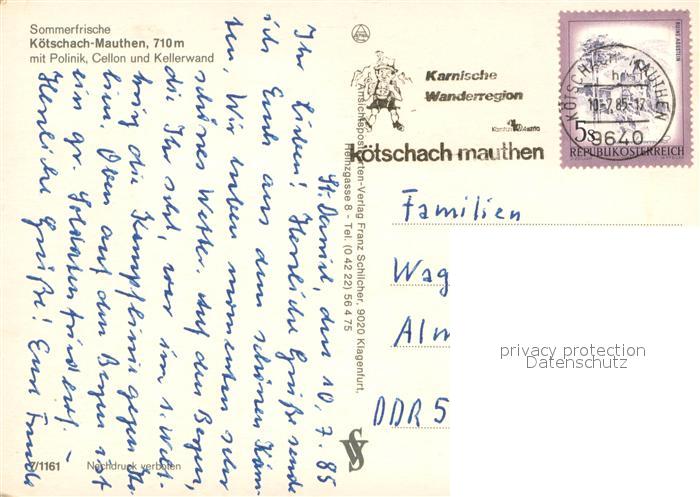 Sommerfrische
Kötschach-Mauthen, 710 m
mit Polinik, Cellon und Kellerwand
St. Daniel, den 10.7.85
Ihr Lieben! Herzliche Grüße sende
ich Euch aus dem schönen Kärn-
ten. Wir haben momentan sehr
schönes Wetter. Auf den Bergen,
die Ihr seht, war im 1. Welt-
krieg die Kampflinie gegen Ita-
lien. Oben auf den Bergen ist
ein gr. Soldatenfriedhof. –
Herzliche Grüße! Eure
7/1161
Nachdruck verboten
Ansichtspostkarten-Verlag Franz Schilcher, 9020 Klagenfurt,
Heinzgasse 8 - Tel. (0 42 22) 56 4 75
Karnische
Wanderregion
kötschach-mauthen
KÖTSCHACH-MAUTHEN
10.-7.85-17
9640
5s
REPUBLIK ÖSTERREICH
Familien
Wag
Alm
DDR 5
privacy protection
Datenschutz